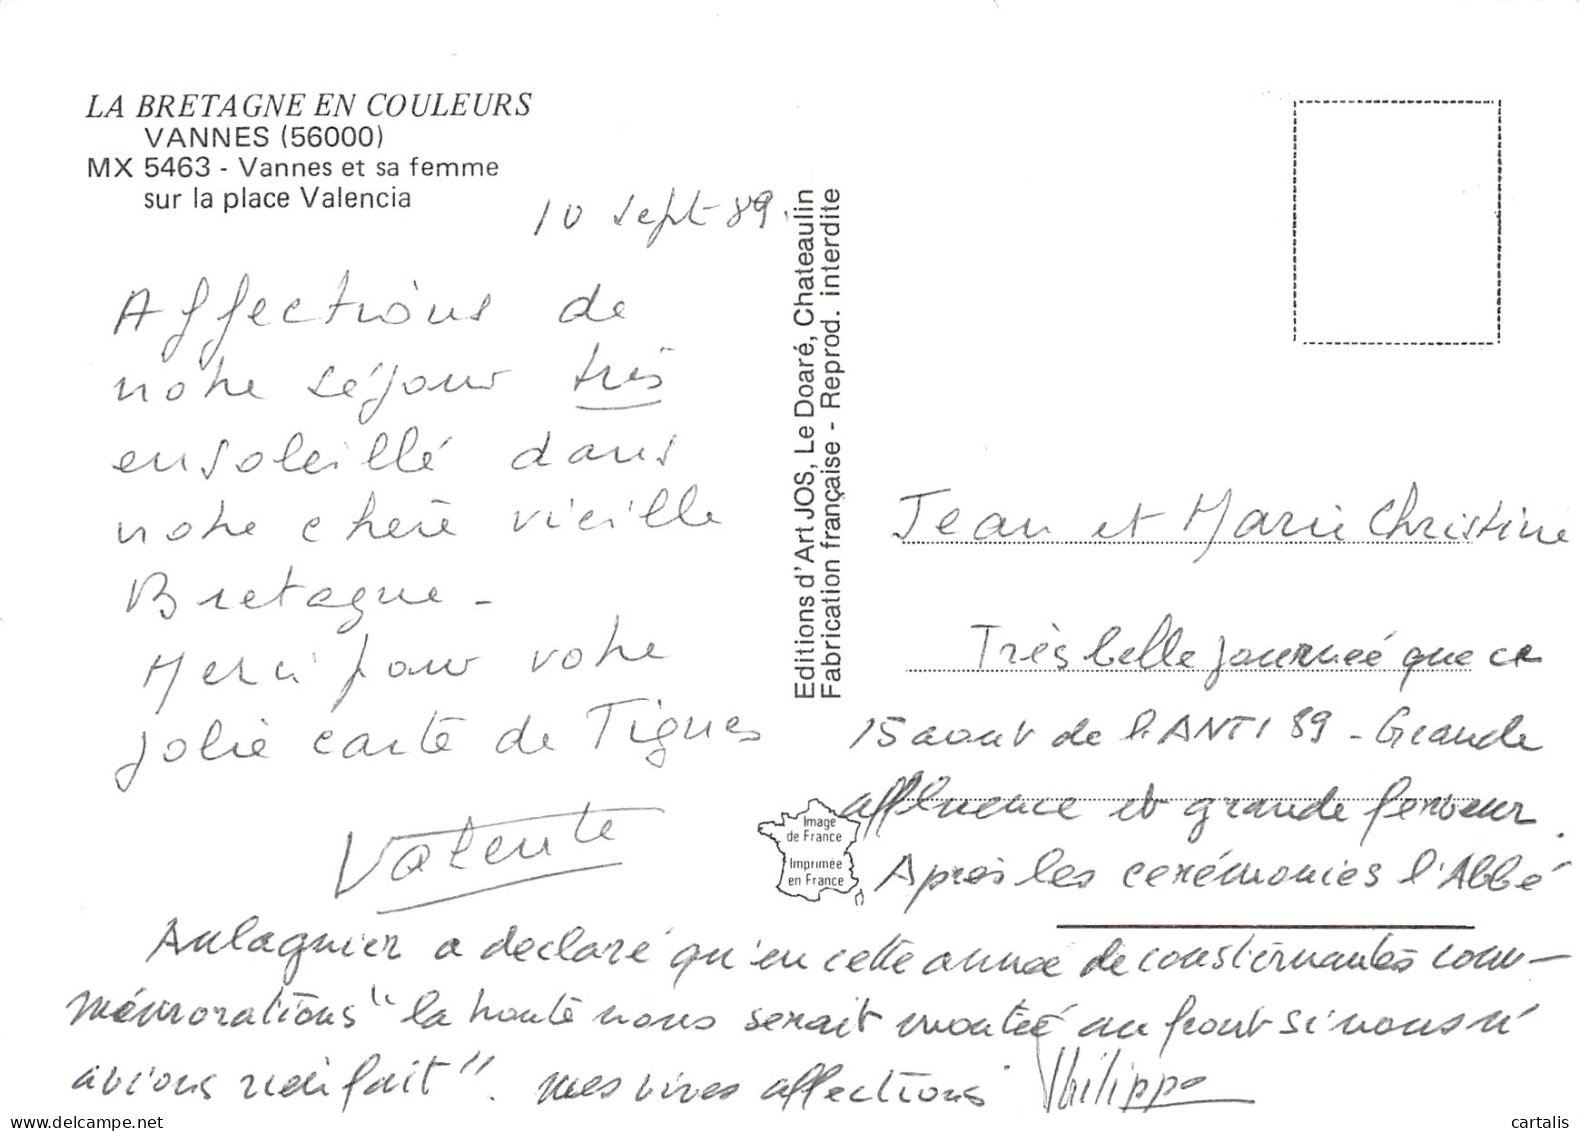 LA BRETAGNE EN COULEURS
VANNES (56000)
MX 5463 - Vannes et sa femme
sur la place Valencia
10 sept 89.
Affections de
notre séjour très
ensoleillé dans
notre chère vieille
Bretagne -
Merci pour votre
jolie carte de Tignes
Valente
Editions d'Art JOS, Le Doaré, Chateaulin
Fabrication française - Reprod. interdite
Image
de France
Imprimée
en France
Jean et Marie Christine
Très belle journée que ce
15 aout de l'ANTI 89 - Grande
affluence et grande ferveur.
Après les cérémonies l'Abbé
Aulagnier a declaré qu'en cette année de consternantes com-
mémorations "la honte nous serait montée au front si nous n'
avions rien fait". mes vives affections Philippe
cartalis
www.delcampe.net